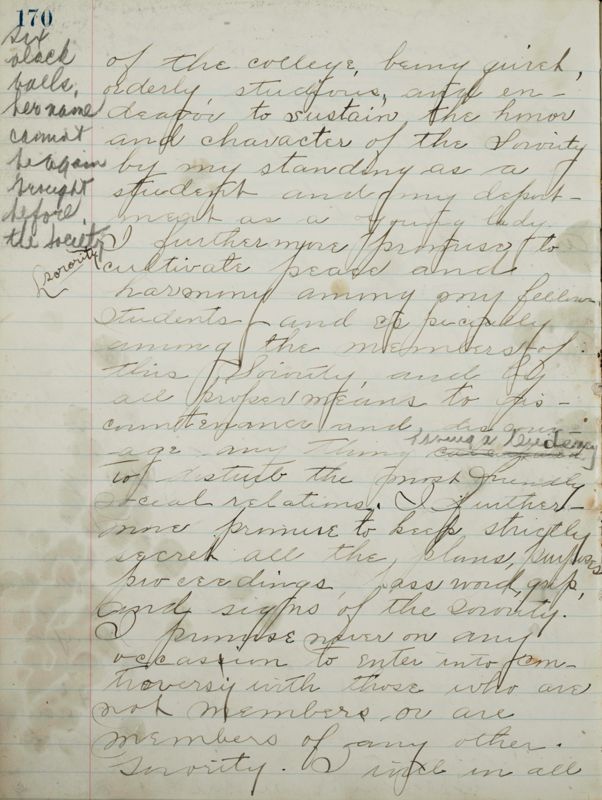 170
six
black
balls,
her name
cannot
be again
brought
before
the society
sorority
of the college, being quiet,
orderly studious, and en-
deavor to sustain the honor
and character of the Sorority
by my standing as a
student and my deport-
ment as a young lady.
I furthermore promise to
cultivate peace and
harmony among my fellow
students and especially
among the members of
this Sorority, and by
all proper means to dis-
countenance and discour-
having a tendency
age any thing calculated
to disturb the most friendly
social relations. I further-
more promise to keep strictly
secret all the plans, purposes
proceedings, pass word, grip,
and signs of the sorority.
I promise never on any
occassion to enter into con-
troversy with those who are
not members or are
members of any other
Sorority. I will in all